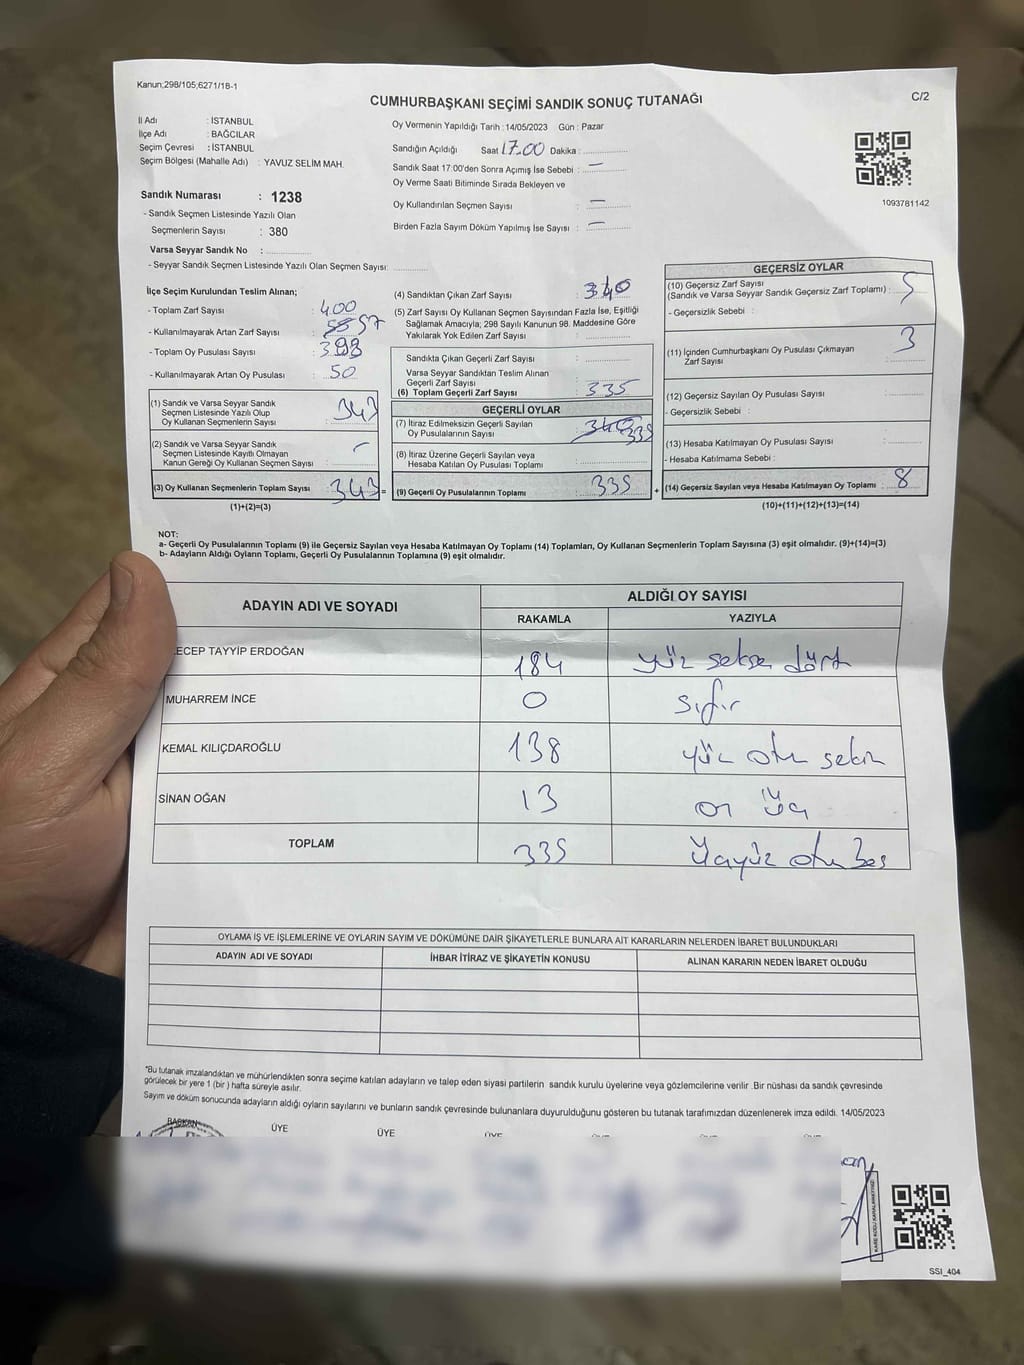 Kanun;298/105;6271/18-1
CUMHURBAŞKANI SEÇİMİ SANDIK SONUÇ TUTANAĞI
C/2
İl Adı : İSTANBUL
İlçe Adı : BAĞCILAR
Seçim Çevresi : İSTANBUL
Seçim Bölgesi (Mahalle Adı) : YAVUZ SELİM MAH.
Sandık Numarası : 1238
- Sandık Seçmen Listesinde Yazılı Olan
Seçmenlerin Sayısı : 380
Varsa Seyyar Sandık No :
- Seyyar Sandık Seçmen Listesinde Yazılı Olan Seçmen Sayısı:
Oy Vermenin Yapıldığı Tarih : 14/05/2023 Gün : Pazar
Sandığın Açıldığı Saat 17.00 Dakika :
Sandık Saat 17:00'den Sonra Açımış İse Sebebi : —
Oy Verme Saati Bitiminde Sırada Bekleyen ve
Oy Kullandırılan Seçmen Sayısı : —
Birden Fazla Sayım Döküm Yapılmış İse Sayısı : —
1093781142
İlçe Seçim Kurulundan Teslim Alınan;
- Toplam Zarf Sayısı : 400
- Kullanılmayarak Artan Zarf Sayısı : 57
- Toplam Oy Pusulası Sayısı : 393
- Kullanılmayarak Artan Oy Pusulası : 50
(1) Sandık ve Varsa Seyyar Sandık
Seçmen Listesinde Yazılı Olup
Oy Kullanan Seçmenlerin Sayısı : 343
(2) Sandık ve Varsa Seyyar Sandık
Seçmen Listesinde Kayıtlı Olmayan
Kanun Gereği Oy Kullanan Seçmen Sayısı : —
(3) Oy Kullanan Seçmenlerin Toplam Sayısı : 343 =
(1)+(2)=(3)
(4) Sandıktan Çıkan Zarf Sayısı : 340
(5) Zarf Sayısı Oy Kullanan Seçmen Sayısından Fazla İse, Eşitliği
Sağlamak Amacıyla; 298 Sayılı Kanunun 98. Maddesine Göre
Yakılarak Yok Edilen Zarf Sayısı :
Sandıkta Çıkan Geçerli Zarf Sayısı :
Varsa Seyyar Sandıktan Teslim Alınan
Geçerli Zarf Sayısı :
(6) Toplam Geçerli Zarf Sayısı : 335
GEÇERLİ OYLAR
(7) İtiraz Edilmeksizin Geçerli Sayılan
Oy Pusulalarının Sayısı : 335
(8) İtiraz Üzerine Geçerli Sayılan veya
Hesaba Katılan Oy Pusulası Toplamı :
(9) Geçerli Oy Pusulalarının Toplamı : 335 +
GEÇERSİZ OYLAR
(10) Geçersiz Zarf Sayısı
(Sandık ve Varsa Seyyar Sandık Geçersiz Zarf Toplamı) : 5
- Geçersizlik Sebebi :
(11) İçinden Cumhurbaşkanı Oy Pusulası Çıkmayan
Zarf Sayısı : 3
(12) Geçersiz Sayılan Oy Pusulası Sayısı :
- Geçersizlik Sebebi :
(13) Hesaba Katılmayan Oy Pusulası Sayısı :
- Hesaba Katılmama Sebebi :
(14) Geçersiz Sayılan veya Hesaba Katılmayan Oy Toplamı : 8
(10)+(11)+(12)+(13)=(14)
NOT:
a- Geçerli Oy Pusulalarının Toplamı (9) ile Geçersiz Sayılan veya Hesaba Katılmayan Oy Toplamı (14) Toplamları, Oy Kullanan Seçmenlerin Toplam Sayısına (3) eşit olmalıdır. (9)+(14)=(3)
b- Adayların Aldığı Oyların Toplamı, Geçerli Oy Pusulalarının Toplamına (9) eşit olmalıdır.
ADAYIN ADI VE SOYADI ALDIĞI OY SAYISI
RAKAMLA YAZIYLA
ECEP TAYYİP ERDOĞAN 184 yüz seksen dört
MUHARREM İNCE 0 sıfır
KEMAL KILIÇDAROĞLU 138 yüz otuz sekiz
SİNAN OĞAN 13 on üç
TOPLAM 335 üçyüz otuz beş
OYLAMA İŞ VE İŞLEMLERİNE VE OYLARIN SAYIM VE DÖKÜMÜNE DAİR ŞİKAYETLERLE BUNLARA AİT KARARLARIN NELERDEN İBARET BULUNDUKLARI
ADAYIN ADI VE SOYADI İHBAR İTİRAZ VE ŞİKAYETİN KONUSU ALINAN KARARIN NEDEN İBARET OLDUĞU
"Bu tutanak imzalandıktan ve mühürlendikten sonra seçime katılan adayların ve talep eden siyasi partilerin sandık kurulu üyelerine veya gözlemcilerine verilir .Bir nüshası da sandık çevresinde
görülecek bir yere 1 (bir ) hafta süreyle asılır.
Sayım ve döküm sonucunda adayların aldığı oyların sayılarını ve bunların sandık çevresinde bulunanlara duyurulduğunu gösteren bu tutanak tarafımızdan düzenlenerek imza edildi. 14/05/2023
BAŞKAN ÜYE ÜYE ÜYE ÜYE ÜYE
SSI_404